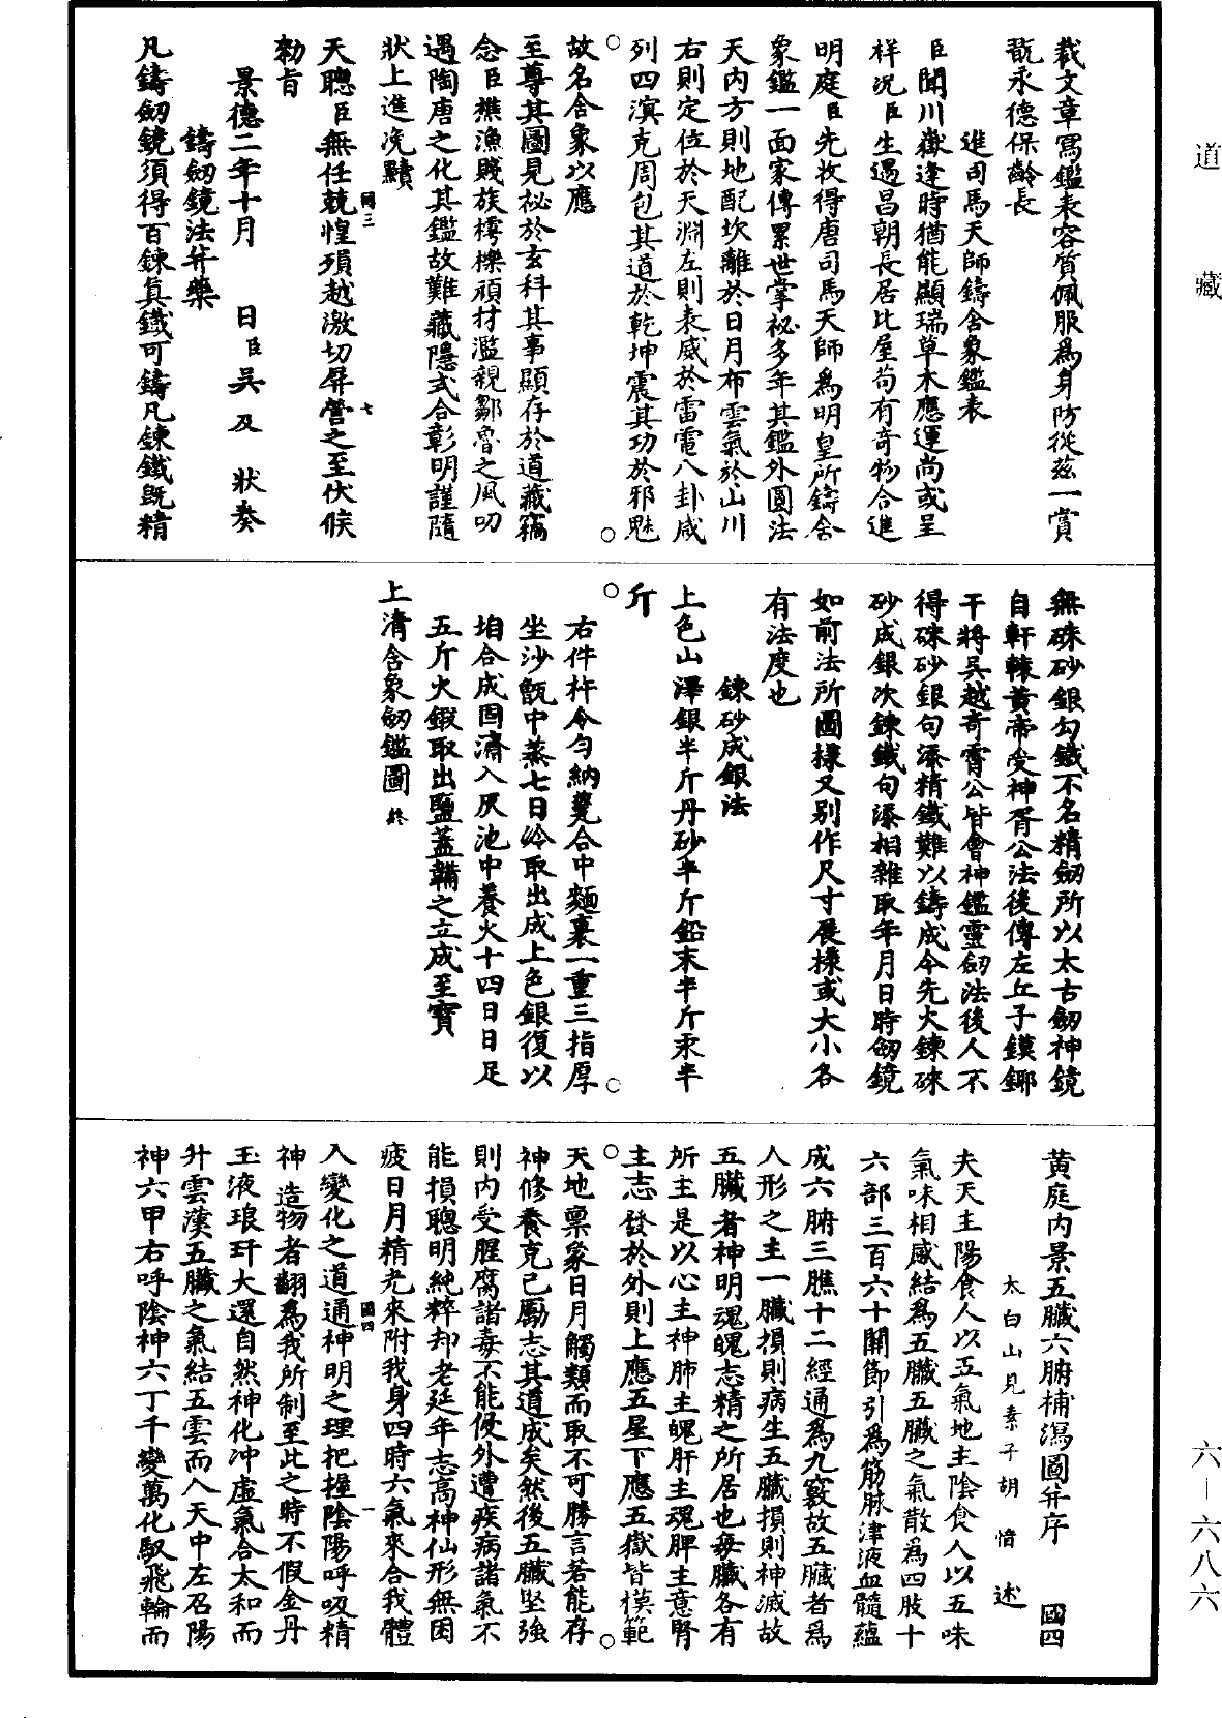 道藏
六—六八六
裁文章寫鑑表容質佩服為身防從茲一賞
翫永德保齡長
進司馬天師鑄含象鑑表
臣聞川嶽逢時猶能顯瑞草木應運尚或呈
祥况臣生遇昌朝長居比屋苟有奇物合進
明庭臣先收得唐司馬天師為明皇所鑄含
象鑑一面家傳累世掌祕多年其鑑外圓法
天內方則地配坎離於日月布雲氣於山川
右則定位於天淵左則表威於雷電八卦咸
列四溟克周包其道於乾坤震其功於邪魅
故名含象以應
至尊其圖見祕於玄科其事顯存於道藏竊
念臣樵漁賤族樗櫟頑材濫親鄒魯之風叨
遇陶唐之化其鑑故難藏隱式合彰明謹隨
狀上進冼黷
國三 七
天聰臣無任兢惶殞越激切屏營之至伏候
勑旨
景德二年十月 日臣吳及 狀奏
鑄劒鏡法并藥
凡鑄劒鏡須得百鍊真鐵可鑄凡鍊鐵既精
無硃砂銀勾鐵不名精劒所以太古劒神鏡
自軒轅黃帝受神胥公法後傳左丘子鏌鎁
干將吳越奇霄公皆會神鑑靈劒法後人不
得硃砂銀句添精鐵難以鑄成今先火鍊硃
砂成銀次鍊鐵句添相雜取年月日時劒鏡
如前法所圖樣又別作尺寸展樣或大小各
有法度也
鍊砂成銀法
上色山澤銀半斤丹砂半斤鉛末半斤汞半
斤
右件杵令勻納甕合中麵裹一重三指厚
坐沙甑中蒸七日冷取出成上色銀復以
坩合成固濟入灰池中養火十四日日足
五斤火鍛取出鹽蓋鞴之立成至寶
上清含象劒鑑圖 終
黄庭內景五臟六腑補瀉圖并序 國四
太白山見素子胡愔述
夫天主陽食人以五氣地主陰食人以五味
氣味相感結為五臟五臟之氣散為四肢十
六部三百六十關節引為筋脉津液血髓蘊
成六腑三膲十二經通為九竅故五臟者為
人形之主一臟損則病生五臟損則神滅故
五臟者神明魂魄志精之所居也每臟各有
所主是以心主神肺主魄肝主魂脾主意腎
主志發於外則上應五星下應五嶽皆模範
天地稟象日月觸類而取不可勝言若能存
神修養克己勵志其道成矣然後五臟堅強
則內受腥腐諸毒不能侵外遭疾病諸氣不
能損聰明純粹却老延年志高神仙形無困
疲日月精光來附我身四時六氣來合我體
國四 一
入變化之道通神明之理把握陰陽呼吸精
神造物者翻為我所制至此之時不假金丹
玉液琅玕大還自然神化冲虛氣合太和而
升雲漢五臟之氣結五雲而入天中左召陽
神六甲右呼陰神六丁千變萬化馭飛輪而